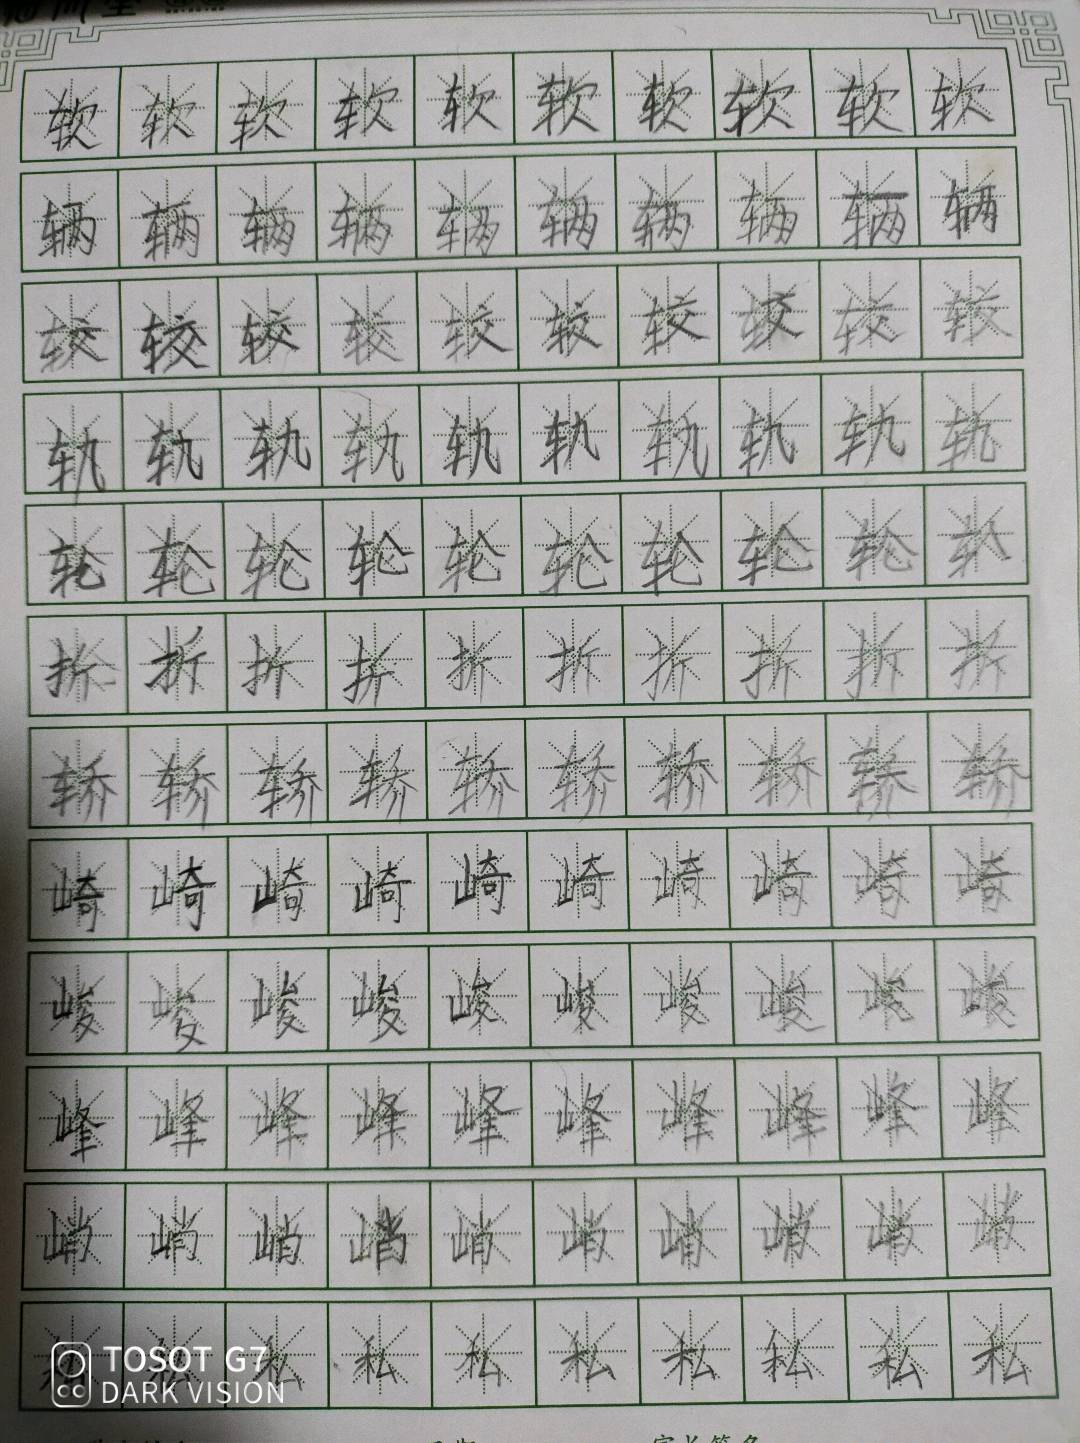 软软软软软软软软软软
辆辆辆辆辆辆辆辆辆辆
较较较较较较较较较较
轨轨轨轨轨轨轨轨轨轨
轮轮轮轮轮轮轮轮轮
折折折折折折折折折折
轿轿轿轿轿轿轿轿轿轿
崎崎崎崎崎崎崎崎崎崎
峻峻峻峻峻峻峻峻峻峻
峰峰峰峰峰峰峰峰峰峰
峭峭峭峭峭峭峭峭峭峭
私私私私私私私私私私
TOSOT G7
DARK VISION
家长签名